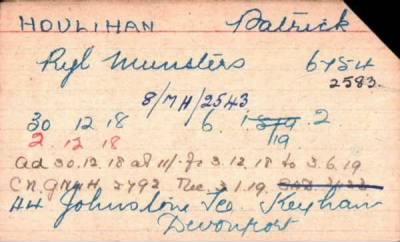 HOULIHAN Patrick
Ryl Munsters 6754
2583.
8/MH/2543
30 12 18 6. 1. 2
19
2 12 18
ad 30.12.18 at 11/- fr 3.12.18 to 3.6.19
CR. 2792 Rec 3.1.19.
44 Johnstone Tce Keyham
Devonport